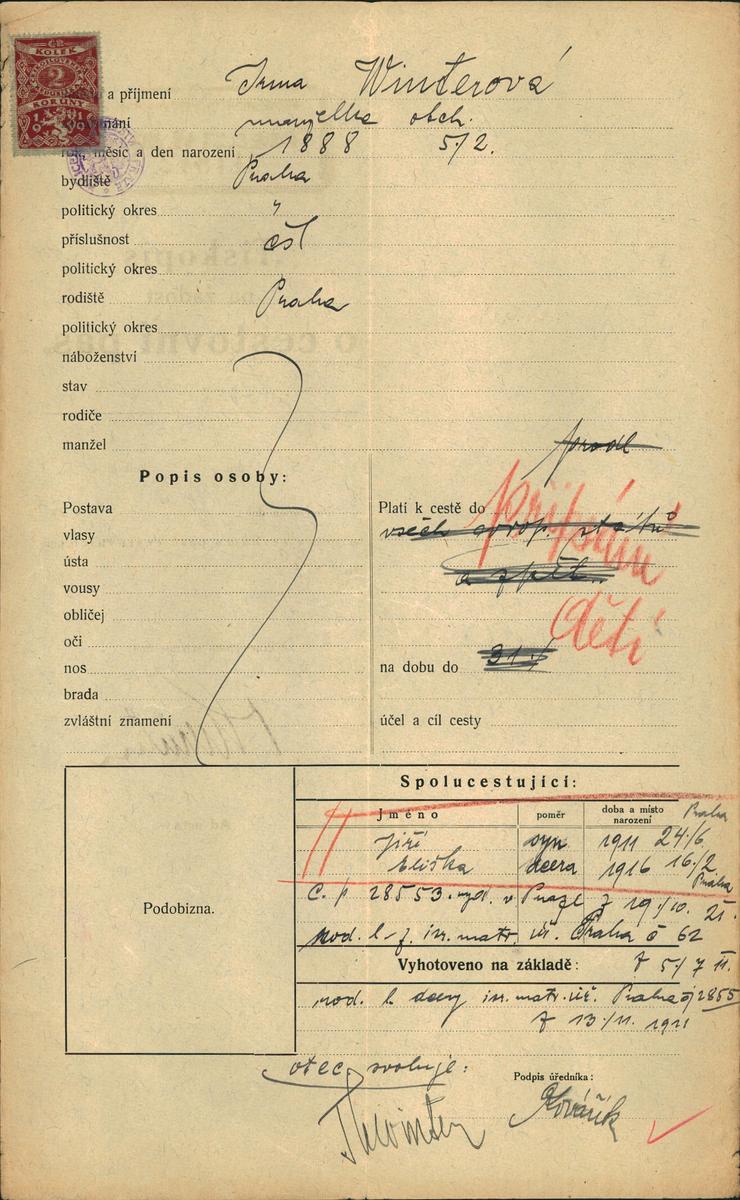 ČR
KOLEK
2
KORUNY
a příjmení Irma Winterová
manželka obch.
měsíc a den narození 1888 5/2.
bydliště Praha
politický okres "
příslušnost čsl
politický okres
rodiště Praha
politický okres
náboženství
stav
rodiče
manžel
prodl
Popis osoby:
Postava
vlasy
ústa
vousy
obličej
oči
nos
brada
zvláštní znamení
Platí k cestě do
všech evrop. států
a zpět.
připsání
dětí
na dobu do 31/
účel a cíl cesty
Podobizna.
Spolucestující:
Jméno poměr doba a místo narození Praha
Jiří syn 1911 24./6
Eliška dcera 1916 16./2
Praha
C. p 28553 vyd. v Praze z 19./10. 21.
rod. l. f. isr. matr. úř. Praha č 62
Vyhotoveno na základě: z 5/7 11.
rod. l dcery isr. matr. úř. Praha čj 2855
z 13./11. 1921
otec svoluje:
Podpis úředníka:
Kovářík